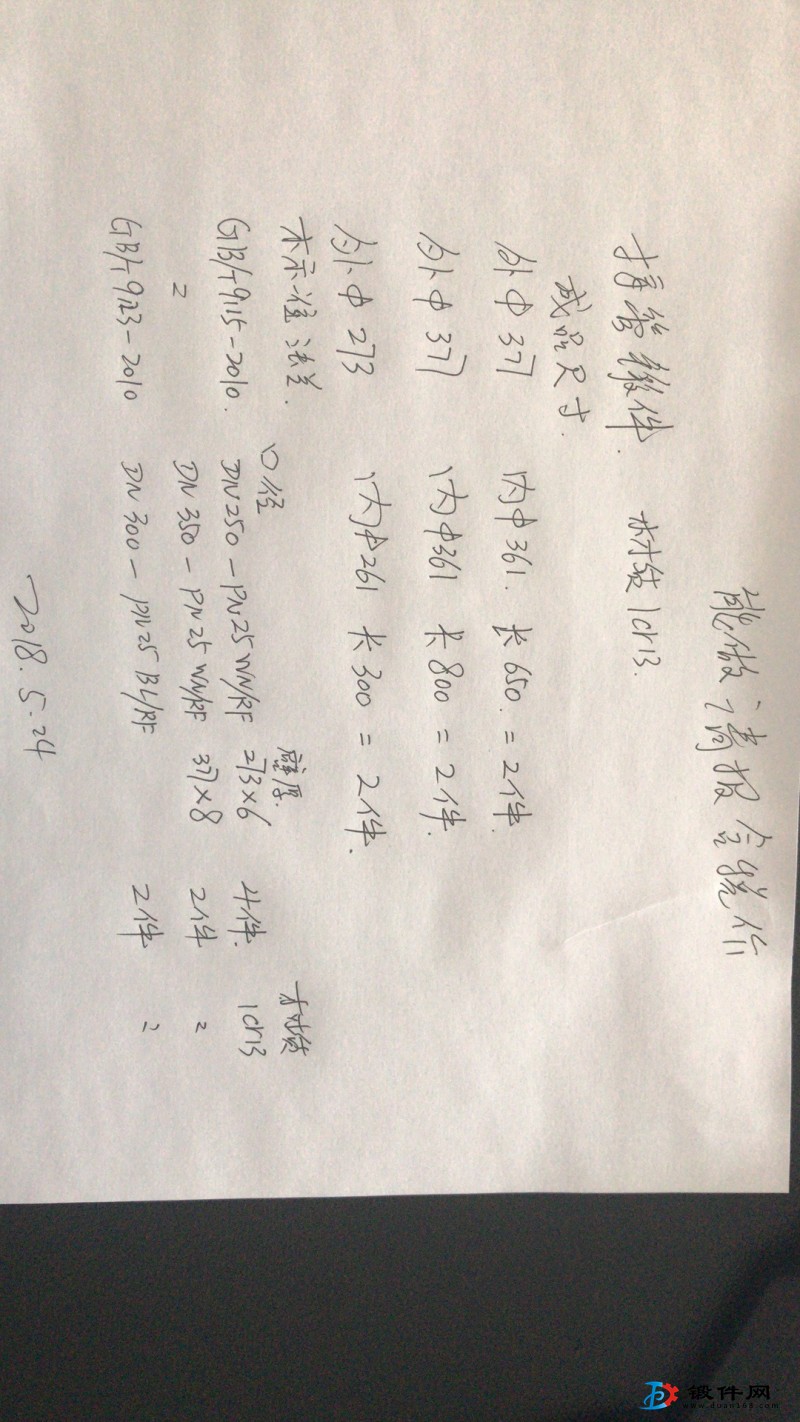 能做请报含税价
指管锻件. 材质1cr13.
成品尺寸.
外Φ377 内Φ361. 长650. = 2件.
外Φ377 内Φ361 长800 = 2件.
外Φ273 内Φ261 长300 = 2件.
标准法兰. 口径 壁厚. 材质
GB/T9115-2010. DN250-PN25 WN/RF 273×6 4件. 1cr13
〃 DN350-PN25 WN/RF 377×8 2件 〃
GB/T9123-2010 DN300-PN25 BL/RF 2件 〃
2018.5.24
锻件网
www.duan168.com